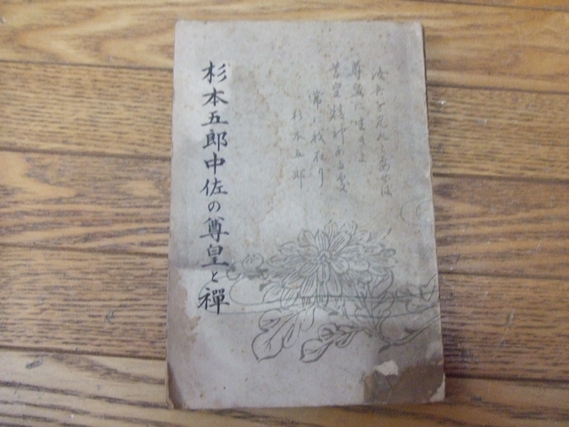 汝吾を見んと要せば
尊皇に生きよ
尊皇精神ある處
常に我在り
杉本五郎
杉本五郎中佐の尊皇と禪